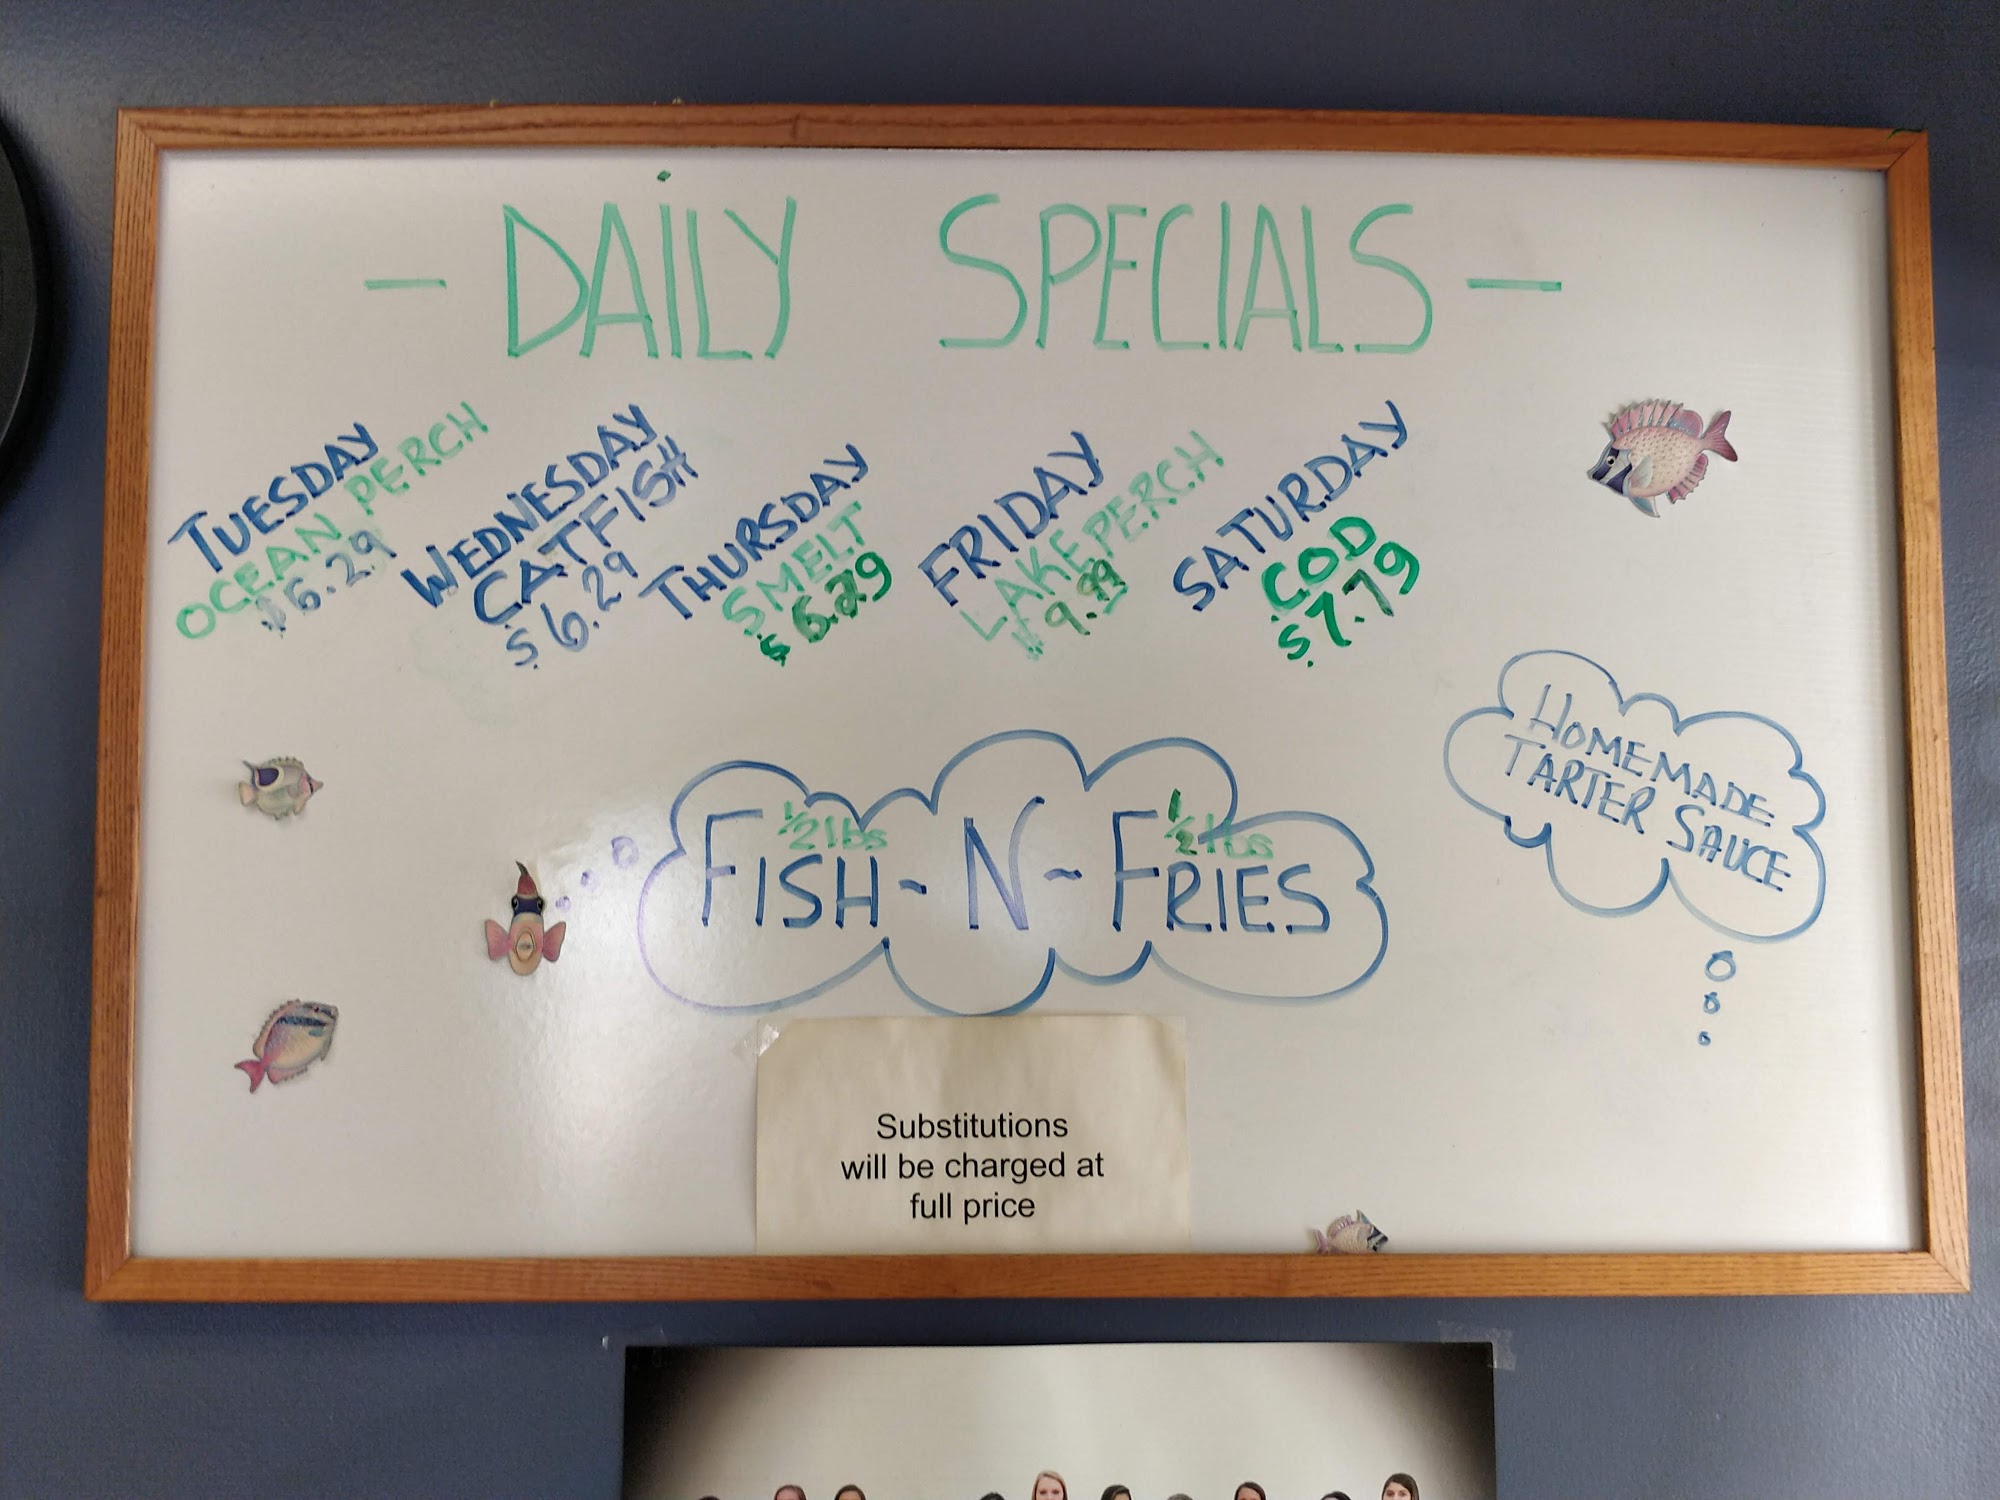 - DAILY SPECIALS -
TUESDAY
OCEAN PERCH
$6.29
WEDNESDAY
CATFISH
$6.29
THURSDAY
SMELT
$6.29
FRIDAY
LAKE PERCH
$9.99
SATURDAY
COD
$7.79
HOMEMADE
TARTER SAUCE
1/2 lbs 1/2 lbs
FISH-N-FRIES
Substitutions
will be charged at
full price